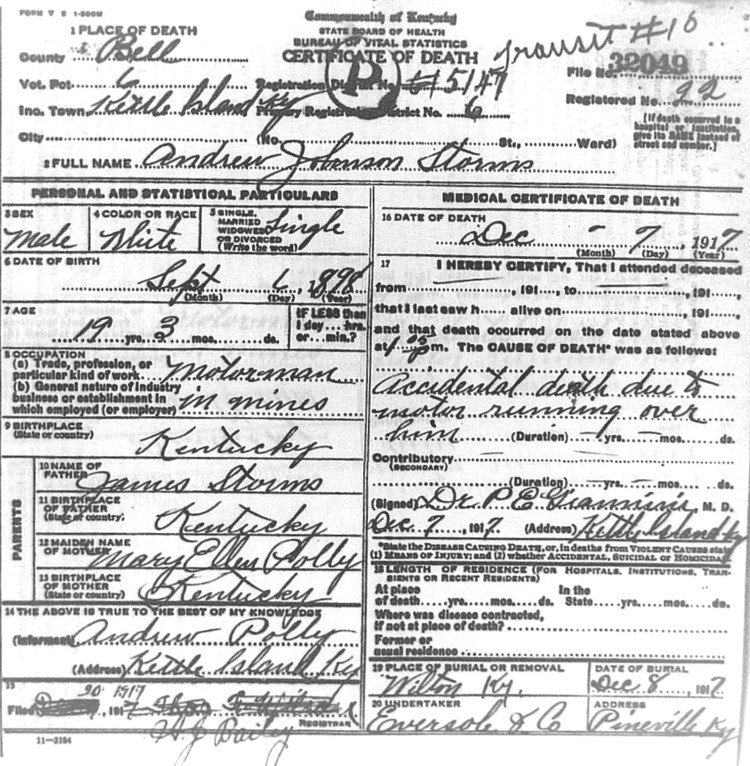 FORM V S 1-500M
Commonwealth of Kentucky
STATE BOARD OF HEALTH
BUREAU OF VITAL STATISTICS
CERTIFICATE OF DEATH
transit #16
1 PLACE OF DEATH
County Bell
File No. 32049
Vot. Pct 6
Registration District No. 5147
Registered No. 22
Inc. Town Kettle Island Ky
Primary Registration District No. 6
[If death occurred in a hospital or institution, give its NAME instead of street and number.]
City (No. St., Ward)
2 FULL NAME Andrew Johnson Storms
PERSONAL AND STATISTICAL PARTICULARS
3 SEX
Male
4 COLOR OR RACE
White
5 SINGLE, MARRIED WIDOWED OR DIVORCED (Write the word)
Single
6 DATE OF BIRTH
Sept 6, 1898
(Month) (Day) (Year)
7 AGE
19 yrs. 3 mos. ds.
IF LESS than 1 day... hrs. or... min.?
8 OCCUPATION
(a) Trade, profession, or particular kind of work Motorman
(b) General nature of industry business or establishment in which employed (or employer) in mines
9 BIRTHPLACE
(State or country) Kentucky
PARENTS
10 NAME OF FATHER James Storms
11 BIRTHPLACE OF FATHER (State or country) Kentucky
12 MAIDEN NAME OF MOTHER Mary Ellen Polly
13 BIRTHPLACE OF MOTHER (State or country) Kentucky
14 THE ABOVE IS TRUE TO THE BEST OF MY KNOWLEDGE
(Informant) Andrew Polly
(Address) Kettle Island Ky
15
20 1917
Filed 191
REGISTRAR
H J Bailey
11-3184
MEDICAL CERTIFICATE OF DEATH
16 DATE OF DEATH
Dec - 7, 1917
(Month) (Day) (Year)
17 I HEREBY CERTIFY, That I attended deceased
from , 191 , to , 191 ,
that I last saw h alive on , 191 ,
and that death occurred on the date stated above
at m. The CAUSE OF DEATH* was as follows:
Accidental death due to
motor running over
him (Duration) yrs. mos. ds.
Contributory
(SECONDARY)
(Duration) yrs. mos. ds.
(Signed) Dr P E Giannini M. D.
Dec 7, 1917 (Address) Kettle Island Ky
*State the DISEASE CAUSING DEATH, or, in deaths from VIOLENT CAUSES state (1) MEANS OF INJURY; and (2) whether ACCIDENTAL, SUICIDAL OR HOMICIDAL
18 LENGTH OF RESIDENCE (FOR HOSPITALS, INSTITUTIONS, TRANSIENTS OR RECENT RESIDENTS)
At place of death yrs. mos. ds. In the State yrs. mos. ds.
Where was disease contracted, if not at place of death?
Former or usual residence
19 PLACE OF BURIAL OR REMOVAL
Wilton Ky.
DATE OF BURIAL
Dec 8, 1917
20 UNDERTAKER
Eversole & Co
ADDRESS
Pineville Ky